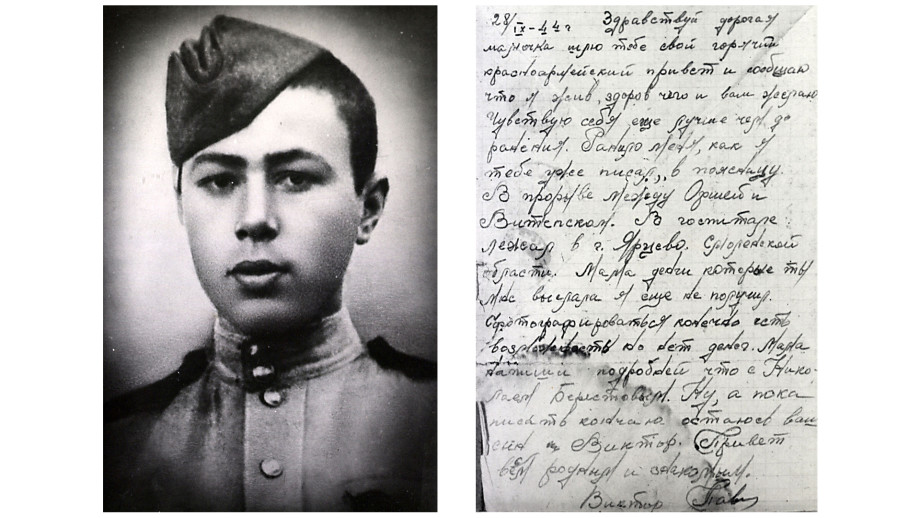 28/IX-44 г Здравствуй дорогая
мамочка шлю тебе свой горячий
красноармейский привет и сообщаю
что я жив, здоров чего и вам желаю
Чувствую себя еще лучше чем до
ранения. Ранило меня, как я
тебе уже писал, в поясницу.
В прорыве между Оршей и
Витепском. В госпитале
лежал в г. Ярцево. Смоленской
области. Мама деньги которые ты
мне выслала я еще не получил.
Сфотографироваться конечно есть
возможность но нет денег. Мама
напиши подробней что с Нико-
лаем Берестовым. Ну, а пока
писать кончаю остаюсь ваш
сын Виктор. Привет
всем родным и знакомым.
Виктор